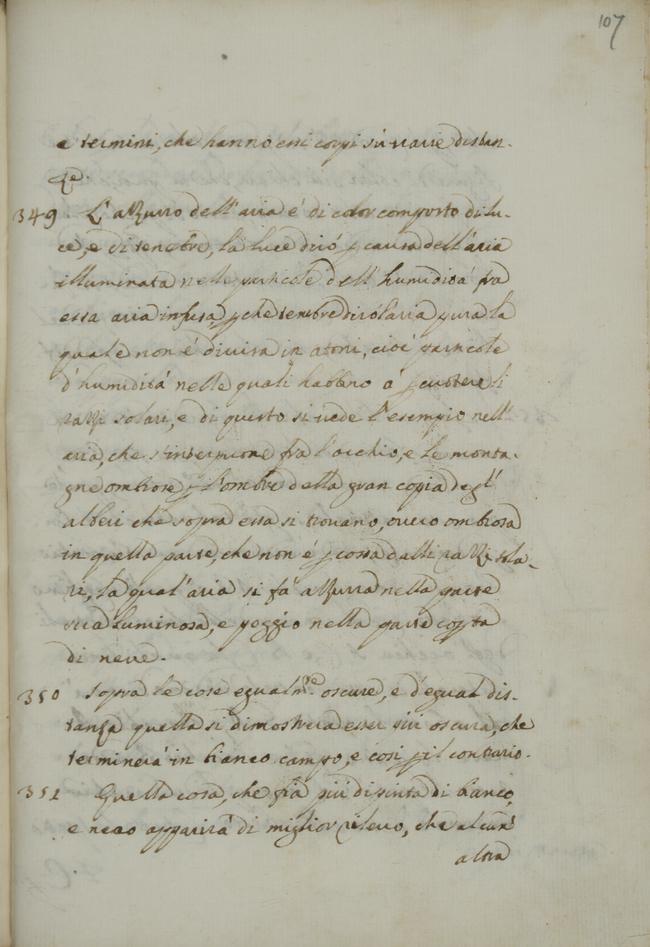 107
e termini, che hanno essi corpi sù varie distan-
ze.
349. L'azzurro dell'aria é di color composto di lu-
ce, e di tenebre, la luce dirò p causa dell'aria
illuminata nelle particole dell'humidità fra
essa aria infusa, p che tenebre dirò l'aria pura la
quale non é divisa in atomi, cioè particole
d'humidità nelle quali habbino á pcuotere li
razzi solari, e di questo si vede l'esempio nell'
aria, che s'interpione fra l'occhio, e le monta-
gne ombrose p l'ombre della gran copia degl'
alberi che sopra essa si trovano, overo ombrosa
in quella parte, che non é pcossa dalli razzi sola-
ri, la qual'aria si fá azzurra nella parte
sua luminosa, e peggio nella parte copta
di neve.
350 Sopra le cose egualmte oscure, e d'egual dis-
tanza quella si dimostrerà esser piú oscura, che
terminerá in bianco campo, e cosi p il contrario.
351 Quella cosa, che fia piú dipinta di bianco,
e nero apparirà di miglior rilevo, che alcun'
altra